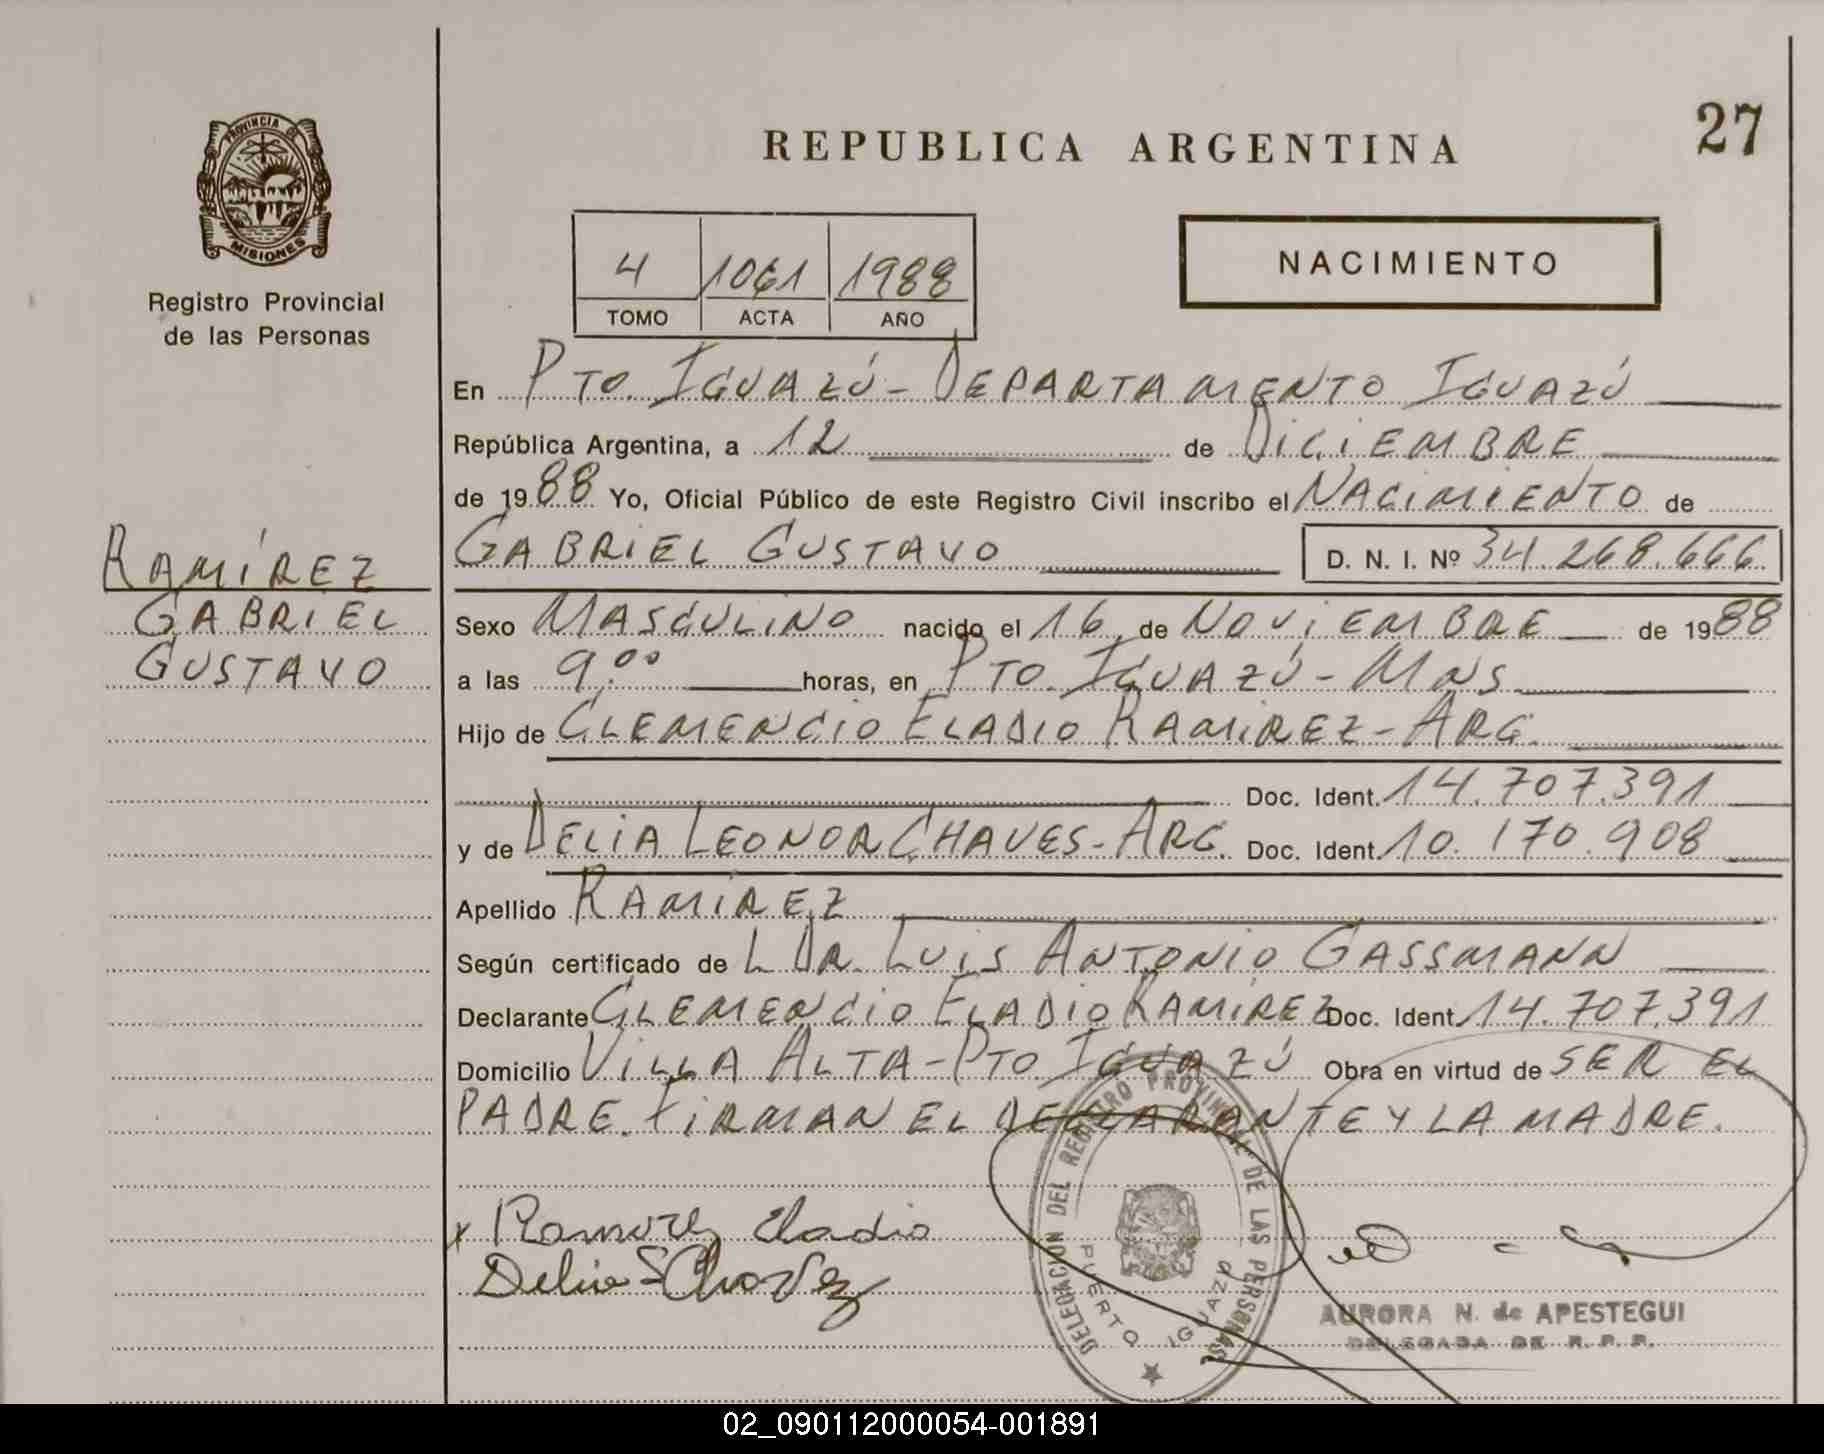 PROVINCIA DE
MISIONES
Registro Provincial
de las Personas
RAMÍREZ
GABRIEL
GUSTAVO
REPUBLICA ARGENTINA
27
4 1061 1988
TOMO ACTA AÑO
NACIMIENTO
En PTO. IGUAZÚ - DEPARTAMENTO IGUAZÚ
República Argentina, a 12 de DICIEMBRE
de 1988 Yo, Oficial Público de este Registro Civil inscribo el NACIMIENTO de
GABRIEL GUSTAVO D. N. I. Nº 34.268.666
Sexo MASCULINO nacido el 16 de NOVIEMBRE de 1988
a las 9,00 horas, en PTO. IGUAZÚ - MNS
Hijo de CLEMENCIO ELADIO RAMIREZ - ARG.
Doc. Ident. 14.707.391
y de DELIA LEONOR CHAVES - ARG. Doc. Ident. 10.170.908
Apellido RAMIREZ
Según certificado de L DR. LUIS ANTONIO GASSMANN
Declarante CLEMENCIO ELADIO RAMÍREZ Doc. Ident. 14.707.391
Domicilio VILLA ALTA - PTO IGUAZÚ Obra en virtud de SER EL
PADRE. FIRMAN EL DECLARANTE Y LA MADRE.
x Ramirez Eladio
Delia Chavez
DELEGACION DEL REGISTRO PROVINCIAL DE LAS PERSONAS
PUERTO IGUAZU
AURORA N. de APESTEGUI
DELEGADA DE R. P. P.
02_090112000054-001891